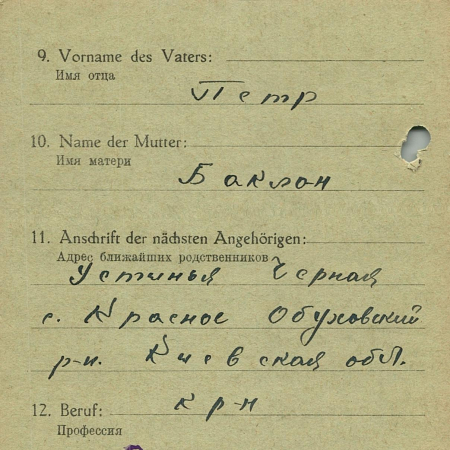 9. Vorname des Vaters:
Имя отца
Петр
10. Name der Mutter:
Имя матери
Баклан
11. Anschrift der nächsten Angehörigen:
Адрес ближайших родственников
Устинья Черная
с. Красное Обуховский
р-н. Киевская обл.
12. Beruf: кр-н
Профессия